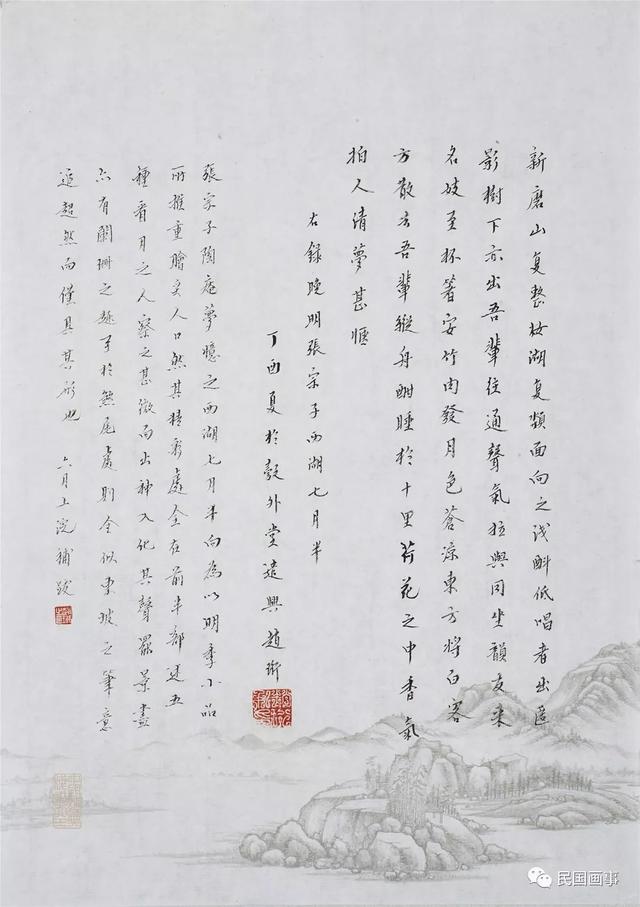 新磨山复整妝湖复頮面向之浅斟低唱者出匿
影樹下亦出吾輩往通聲氣拉與同坐韻友来
名妓至杯箸安竹肉發月色蒼涼東方將白客
方散去吾輩縱舟酣睡於十里荷花之中香氣
拍人清夢甚愜
右錄晚明張宗子西湖七月半
丁酉夏於外堂遣興趙衎
張宗子陶庵夢憶之西湖七月半向為以明季小品
所推重膾炙人口然其精彩處全在前半部述五
種看月之人察之甚微而出神入化其聲嚣景盡
亦有闌珊之趣至於煞尾處則全似東坡之筆意
追超然而僅具其形也 六月上浣補跋
民国画事